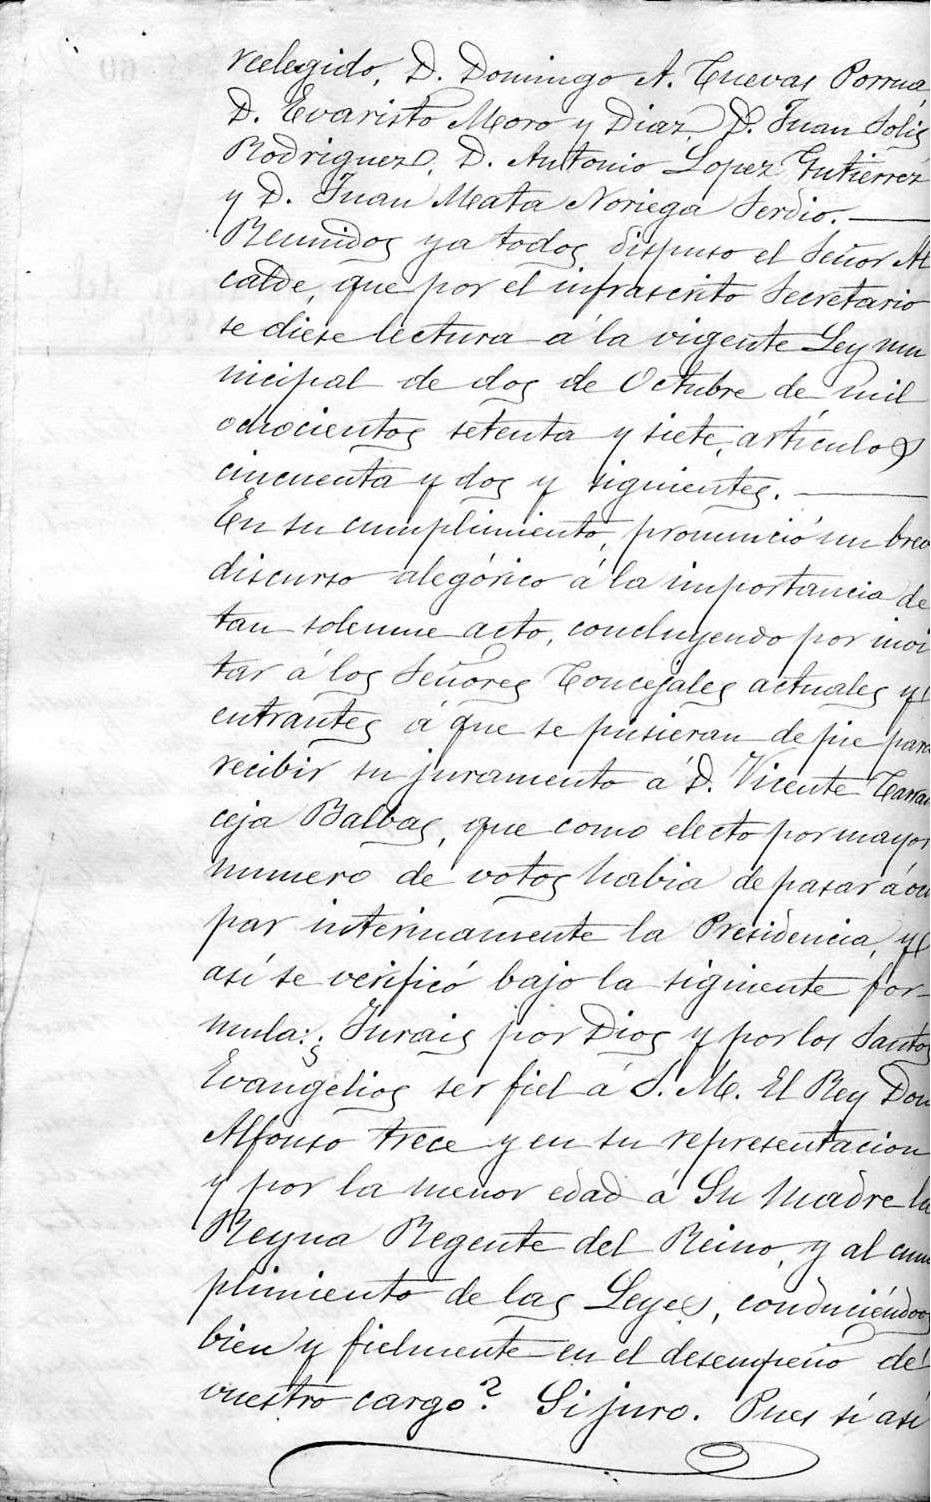 reelegido, D. Domingo A. Cuevas Porrua,
D. Evaristo Moro y Diaz, D. Juan Solis
Rodriguez, D. Antonio Lopez Gutierrez
y D. Juan Mata Noriega Serdio.
Reunidos ya todos dispuso el Señor Al
calde, que por el infrascrito Secretario
se diese lectura á la vigente Ley mu
nicipal de dos de Octubre de mil
ochocientos setenta y siete, artículos
cincuenta y dos y siguientes.
En su cumplimiento, pronunció un breve
discurso alegórico á la importancia de
tan solemne acto, concluyendo por invi
tar á los Señores Concejales actuales y
entrantes á que se pusieran de pie para
recibir su juramento á D. Vicente Carran
ceja Balbas, que como electo por mayor
numero de votos habia de pasar á ocu
par interinamente la Presidencia, y
así se verificó bajo la siguiente for-
mula: ¿Jurais por Dios y por los Santos
Evangelios ser fiel á S. M. El Rey Don
Alfonso trece y en su representacion
y por la menor edad á Su Madre la
Reyna Regente del Reino, y al cum
plimiento de las Leyes, conduciéndoos
bien y fielmente en el desempeño de
vuestro cargo? Si juro. Pues si asi